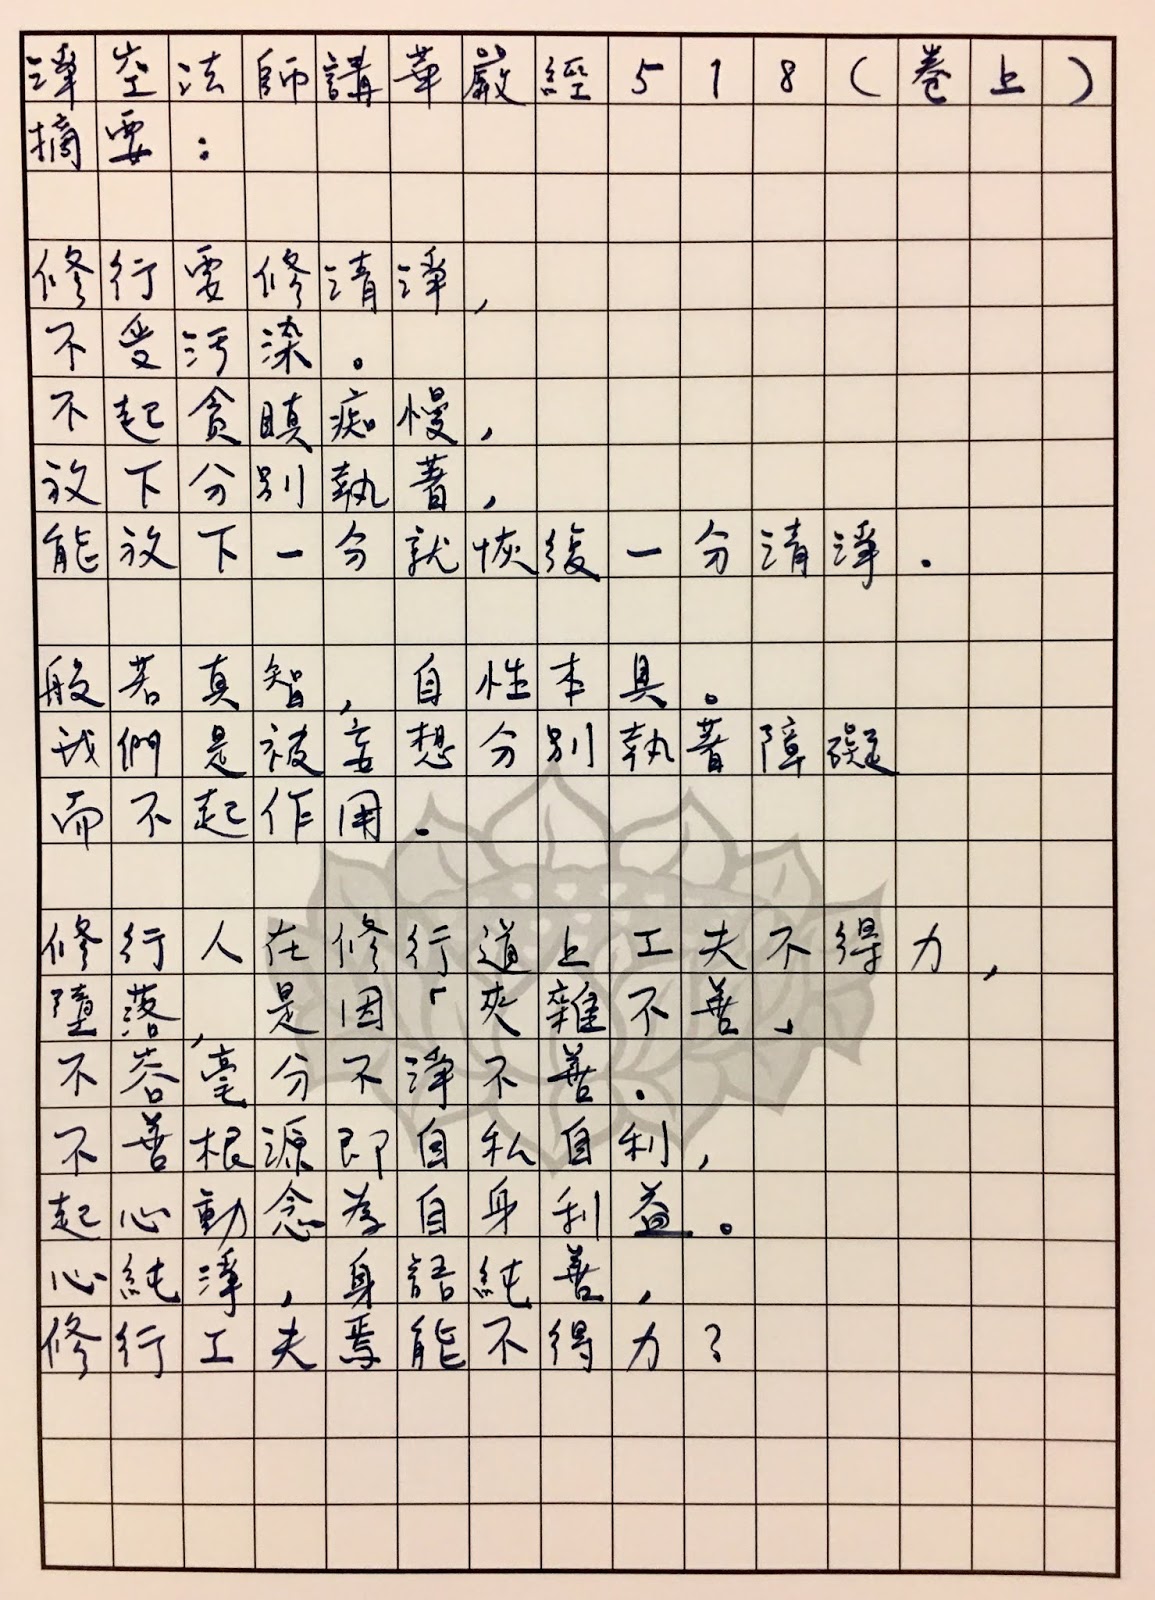 淨空法師講華嚴經518(卷上)
摘要:
修行要修清淨,
不受污染。
不起貪瞋痴慢,
放下分別執著,
能放下一分就恢復一分清淨.
般若真智,自性本具。
我們是被妄想分別執著障礙
而不起作用.
修行人在修行道上工夫不得力,
墮落,是因「夾雜不善」
不容毫分不淨不善.
不善根源即自私自利,
起心動念為自身利益。
心純淨,身語純善,
修行工夫焉能不得力?